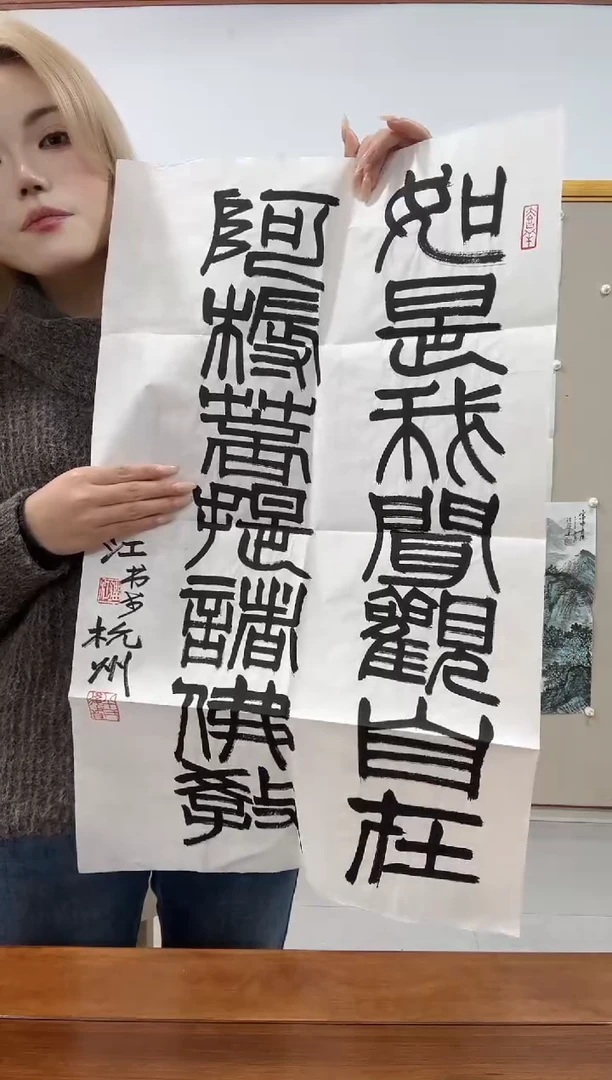 如是我聞觀自在
阿耨菩提諸佛教
江书于
杭州